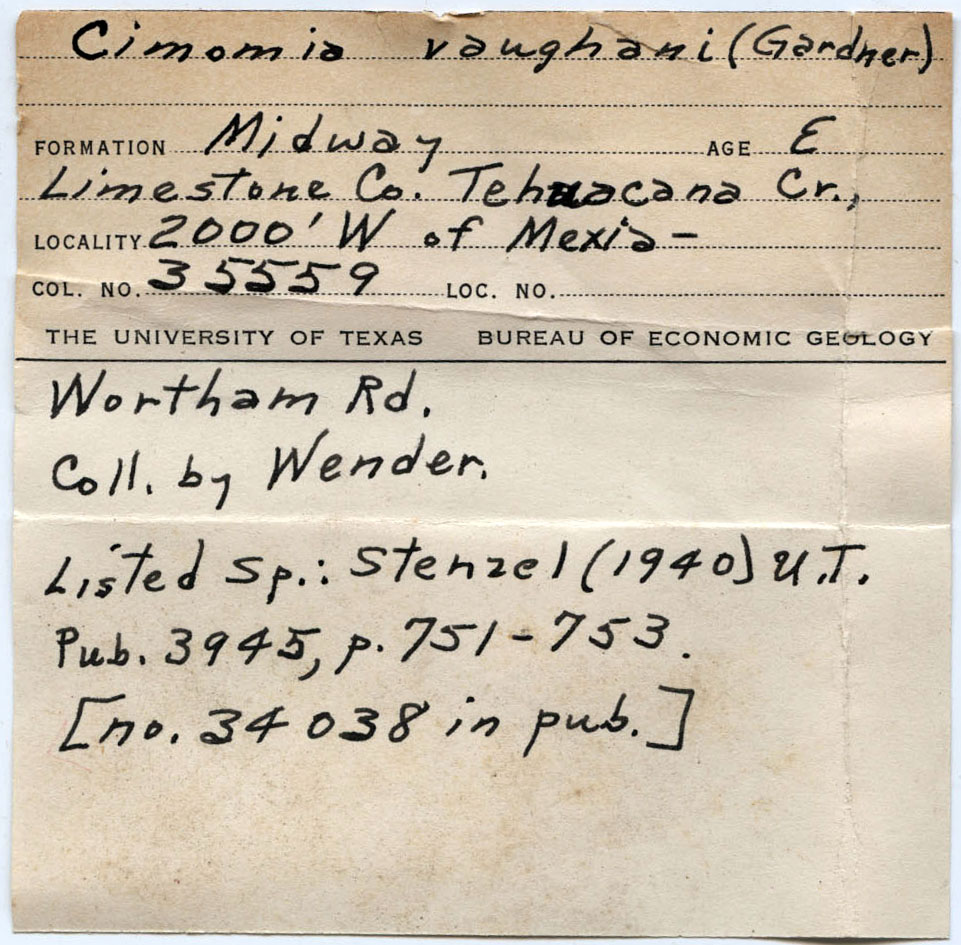 Cimomia vaughani (Gardner)
FORMATION Midway AGE E
Limestone Co. Tehuacana Cr.,
LOCALITY 2000' W of Mexia –
COL. NO. 35559 LOC. NO.
THE UNIVERSITY OF TEXAS BUREAU OF ECONOMIC GEOLOGY
Wortham Rd.
Coll. by Wender.
Listed Sp.: Stenzel (1940) U.T.
Pub. 3945, p. 751-753.
[no. 34038 in pub.]